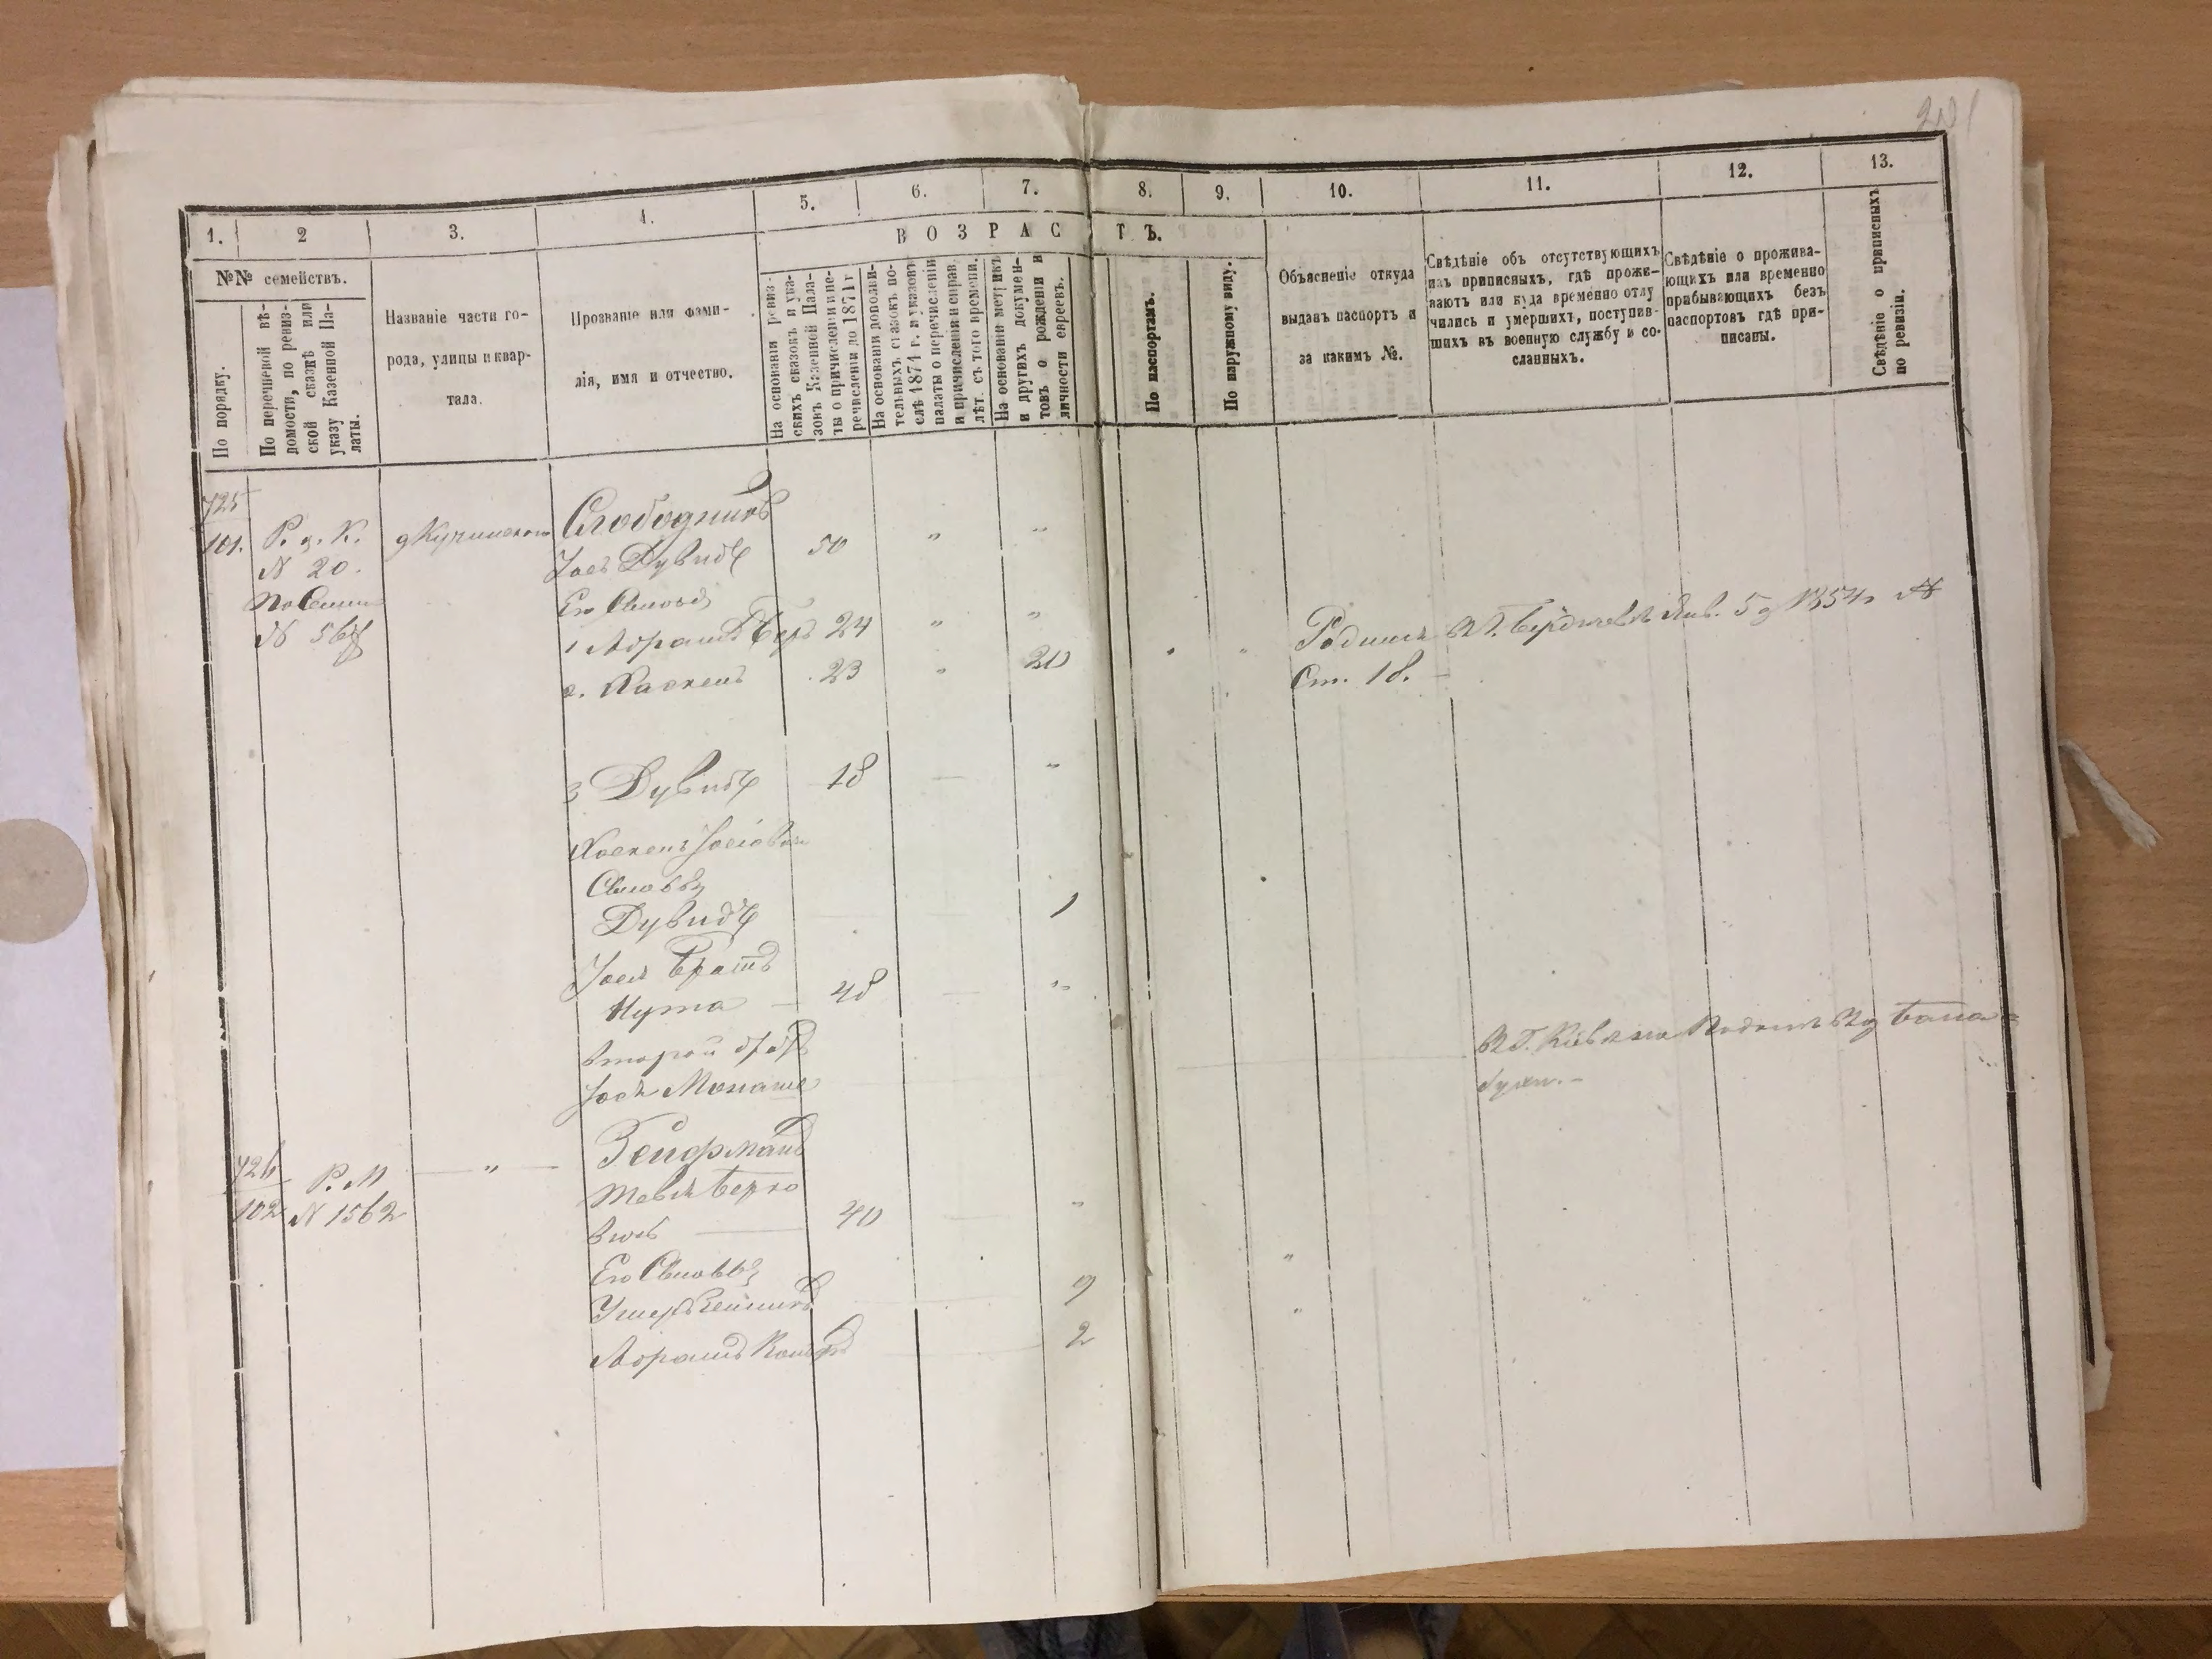 1.
2
3.
4.
5.
6.
7.
8.
9.
10.
11.
12.
13.
В О З Р А С Т Ъ.
№№ семействъ.
По порядку.
По перечневой вѣ-
домости, по ревиз-
ской сказкѣ или
указу Казенной Па-
латы.
Названіе части го-
рода, улицы и квар-
тала.
Прозваніе или фами-
лія, имя и отчество.
На основаніи ревиз-
скихъ сказокъ и ука-
зовъ Казенной Пала-
ты о причисленіи и пе-
речисленіи до 1874 г
На основаніи дополни-
тельныхъ сказокъ по-
слѣ 1874 г. и указовъ
палаты о перечисленіи
и причисленіи и справ.
лѣт. съ того времени.
На основаніи метрикъ
и другихъ докумен-
товъ о рожденіи и
личности евреевъ.
По паспортамъ.
По наружному виду.
Объясненіе откуда
выданъ паспортъ и
за какимъ №.
Свѣдѣніе объ отсутствующихъ
изъ приписныхъ, гдѣ прожи-
ваютъ или куда временно отлу
чились и умершихъ, поступив-
шихъ въ военную службу и со-
сланныхъ.
Свѣдѣніе о прожива-
ющихъ или временно
прибывающихъ безъ
паспортовъ гдѣ при-
писаны.
Свѣдѣніе о приписныхъ
по ревизіи.
725
101. Р. д. К. Слободникъ
N 20. Іось Дувидъ 50 " "
Его Сыновья
N 567 1 Абрамъ Беръ 24 " "
2. Хаскель 23 " 20
Родился въ г. Бердичевѣ Янв. 5 д 1854 г N
Ст. 18.
3 Дувидъ 18 "
Хаскель Іосіовъ
Сыновья
Дувидъ 1
Іося Братъ
Нута 48 "
второй братъ
Іося Монаше
726 Р. М " Гейфманъ
102 N 1562 Тевель Берко
вичъ 40 "
Его Сыновья
Ушеръ Зейликъ 9
Абрамъ 2